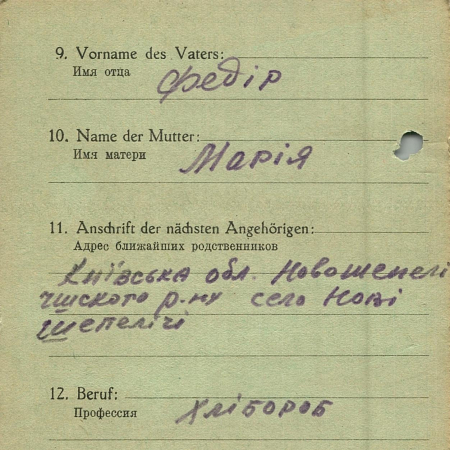 9. Vorname des Vaters:
Имя отца
Федір
10. Name der Mutter:
Имя матери
Марія
11. Anschrift der nächsten Angehörigen:
Адрес ближайших родственников
Київська обл. Новошепелі
чшского р-ну село Нові
Шепелічі
12. Beruf:
Профессия
Хлібороб